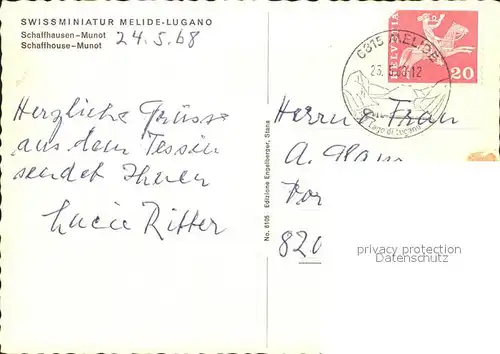 SWISSMINIATUR MELIDE-LUGANO
Schaffhausen-Munot
Schaffhouse-Munot
24.5.68
Herzliche Grüsse
aus dem Tessin
sendet Ihnen
Lucie Ritter
No. 6105 Edizione Engelberger, Stans
6815 MELIDE
Lago di Lugano
HELVETIA
20
Herrn & Frau
A.
820
privacy protection
Datenschutz